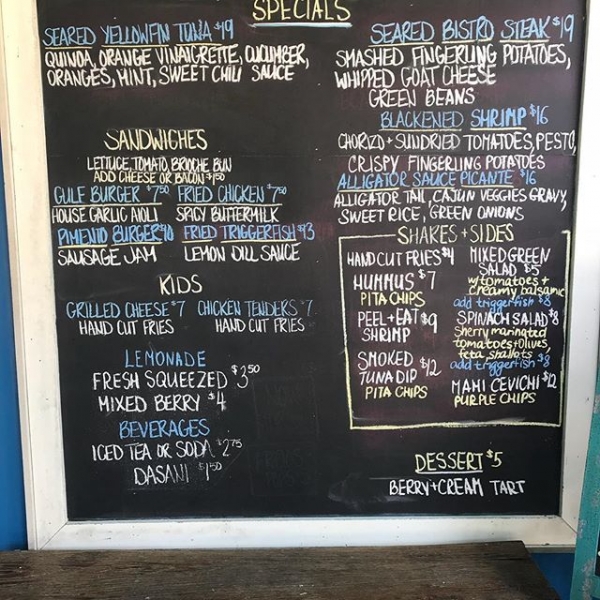 SPECIALS
SEARED YELLOWFIN TUNA $19
QUINOA, ORANGE VINAIGRETTE, CUCUMBER,
ORANGES, MINT, SWEET CHILI SAUCE
SEARED BISTRO STEAK $19
SMASHED FINGERLING POTATOES,
WHIPPED GOAT CHEESE
GREEN BEANS
BLACKENED SHRIMP $16
CHORIZO + SUNDRIED TOMATOES, PESTO,
CRISPY FINGERLING POTATOES
ALLIGATOR SAUCE PICANTE $16
ALLIGATOR TAIL, CAJUN VEGGIES GRAVY,
SWEET RICE, GREEN ONIONS
SANDWICHES
LETTUCE, TOMATO, BRIOCHE BUN
ADD CHEESE OR BACON $1.50
GULF BURGER $7.50
HOUSE GARLIC AIOLI
FRIED CHICKEN $7.50
SPICY BUTTERMILK
PIMENTO BURGER $10
SAUSAGE JAM
FRIED TRIGGERFISH $13
LEMON DILL SAUCE
KIDS
GRILLED CHEESE $7
HAND CUT FRIES
CHICKEN TENDERS $7
HAND CUT FRIES
LEMONADE
FRESH SQUEEZED $3.50
MIXED BERRY $4
BEVERAGES
ICED TEA OR SODA $2.75
DASANI $1.50
SHAKES + SIDES
HAND CUT FRIES $4
HUMMUS $7
PITA CHIPS
PEEL + EAT $9
SHRIMP
SMOKED $12
TUNA DIP
PITA CHIPS
MIXED GREEN
SALAD $5
w/tomatoes +
creamy balsamic
add triggerfish $8
SPINACH SALAD $8
Sherry marinated
tomatoes + olives
feta shallots
add triggerfish $8
MAHI CEVICHI $12
PURPLE CHIPS
DESSERT $5
BERRY + CREAM TART